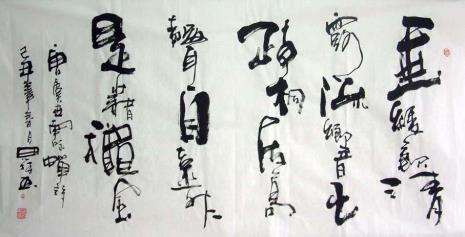 垂緌飲清
露流響出
疏桐居高
聲自遠非
是藉龝風
唐虞世南詠蟬詩
己丑年春月